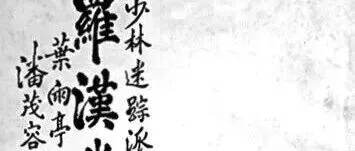 少林迷踪派
羅漢
葉雨亭
潘茂容